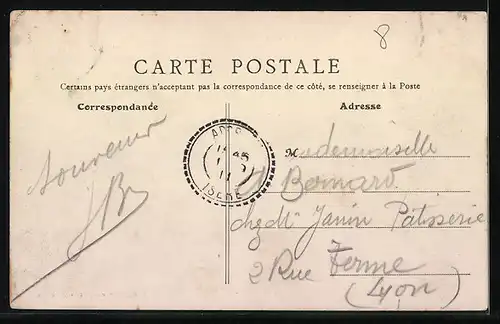 8
CARTE POSTALE
Certains pays étrangers n'acceptant pas la correspondance de ce côté, se renseigner à la Poste
Correspondance
Adresse
souvenir
JB
ISÈRE
Mademoiselle
Bernard
chez Mr Janin Patisserie
2 Rue Ferme
(Lyon)